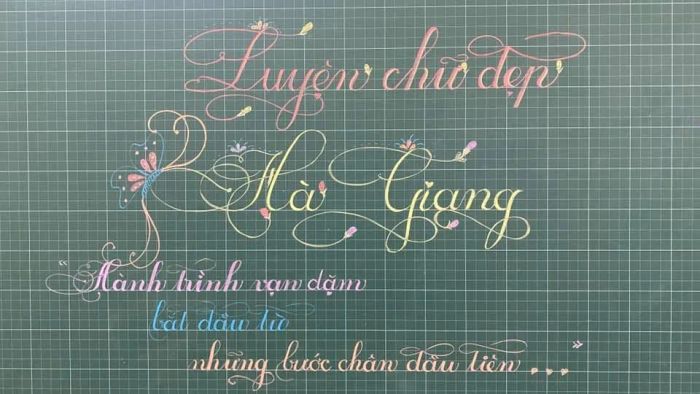 Luyện chữ đẹp
Hà Giang
"Hành trình vạn dặm
bắt đầu từ
những bước chân đầu tiên..."